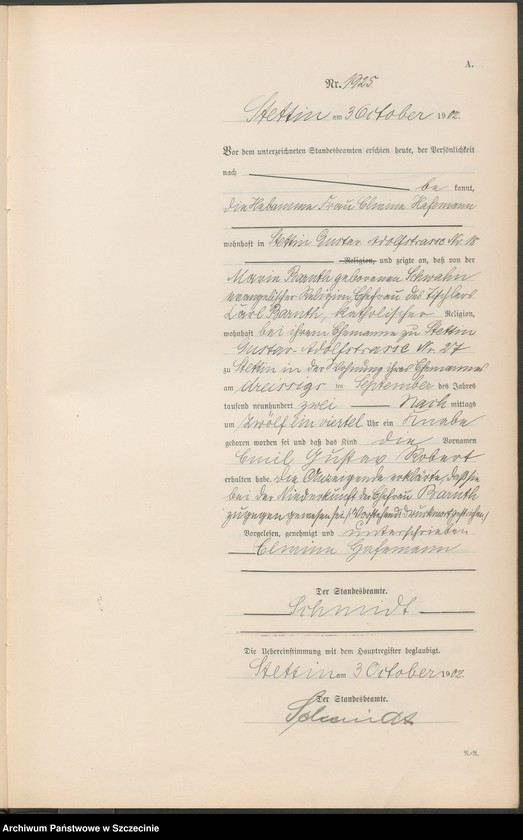 A.
Nr. 1925.
Stettin am 3 October 1902
Vor dem unterzeichneten Standesbeamten erschien heute, der Persönlichkeit
nach be kannt,
die Hebamme Frau Elwine Hafemann
wohnhaft in Stettin Gustav Adolfstrasse Nr. 18
Religion, und zeigte an, daß von der
Marie Barnth geborenen Schwahn
evangelischer Religion, Ehefrau des Tischlers
Carl Barnth, katholischer Religion,
wohnhaft bei ihrem Ehemanne zu Stettin
Gustav-Adolfstrasse Nr. 27
zu Stettin in der Wohnung ihres Ehemannes
am dreissigs ten September des Jahres
tausend neunhundert zwei Nach mittags
um zwölf ein viertel Uhr ein Knabe
geboren worden sei und daß das Kind die Vornamen
Emil Gustav Robert
erhalten habe. Die Anzeigende erklärte, daß sie
bei der Niederkunft der Ehefrau Barnth
zugegen gewesen sei. (Vorstehend 1 Druckwort gestrichen.)
Vorgelesen, genehmigt und unterschrieben
Elwine Hafemann
Der Standesbeamte.
Schmidt
Die Uebereinstimmung mit dem Hauptregister beglaubigt.
Stettin am 3 October 1902
Der Standesbeamte.
Schmidt
Archiwum Państwowe w Szczecinie